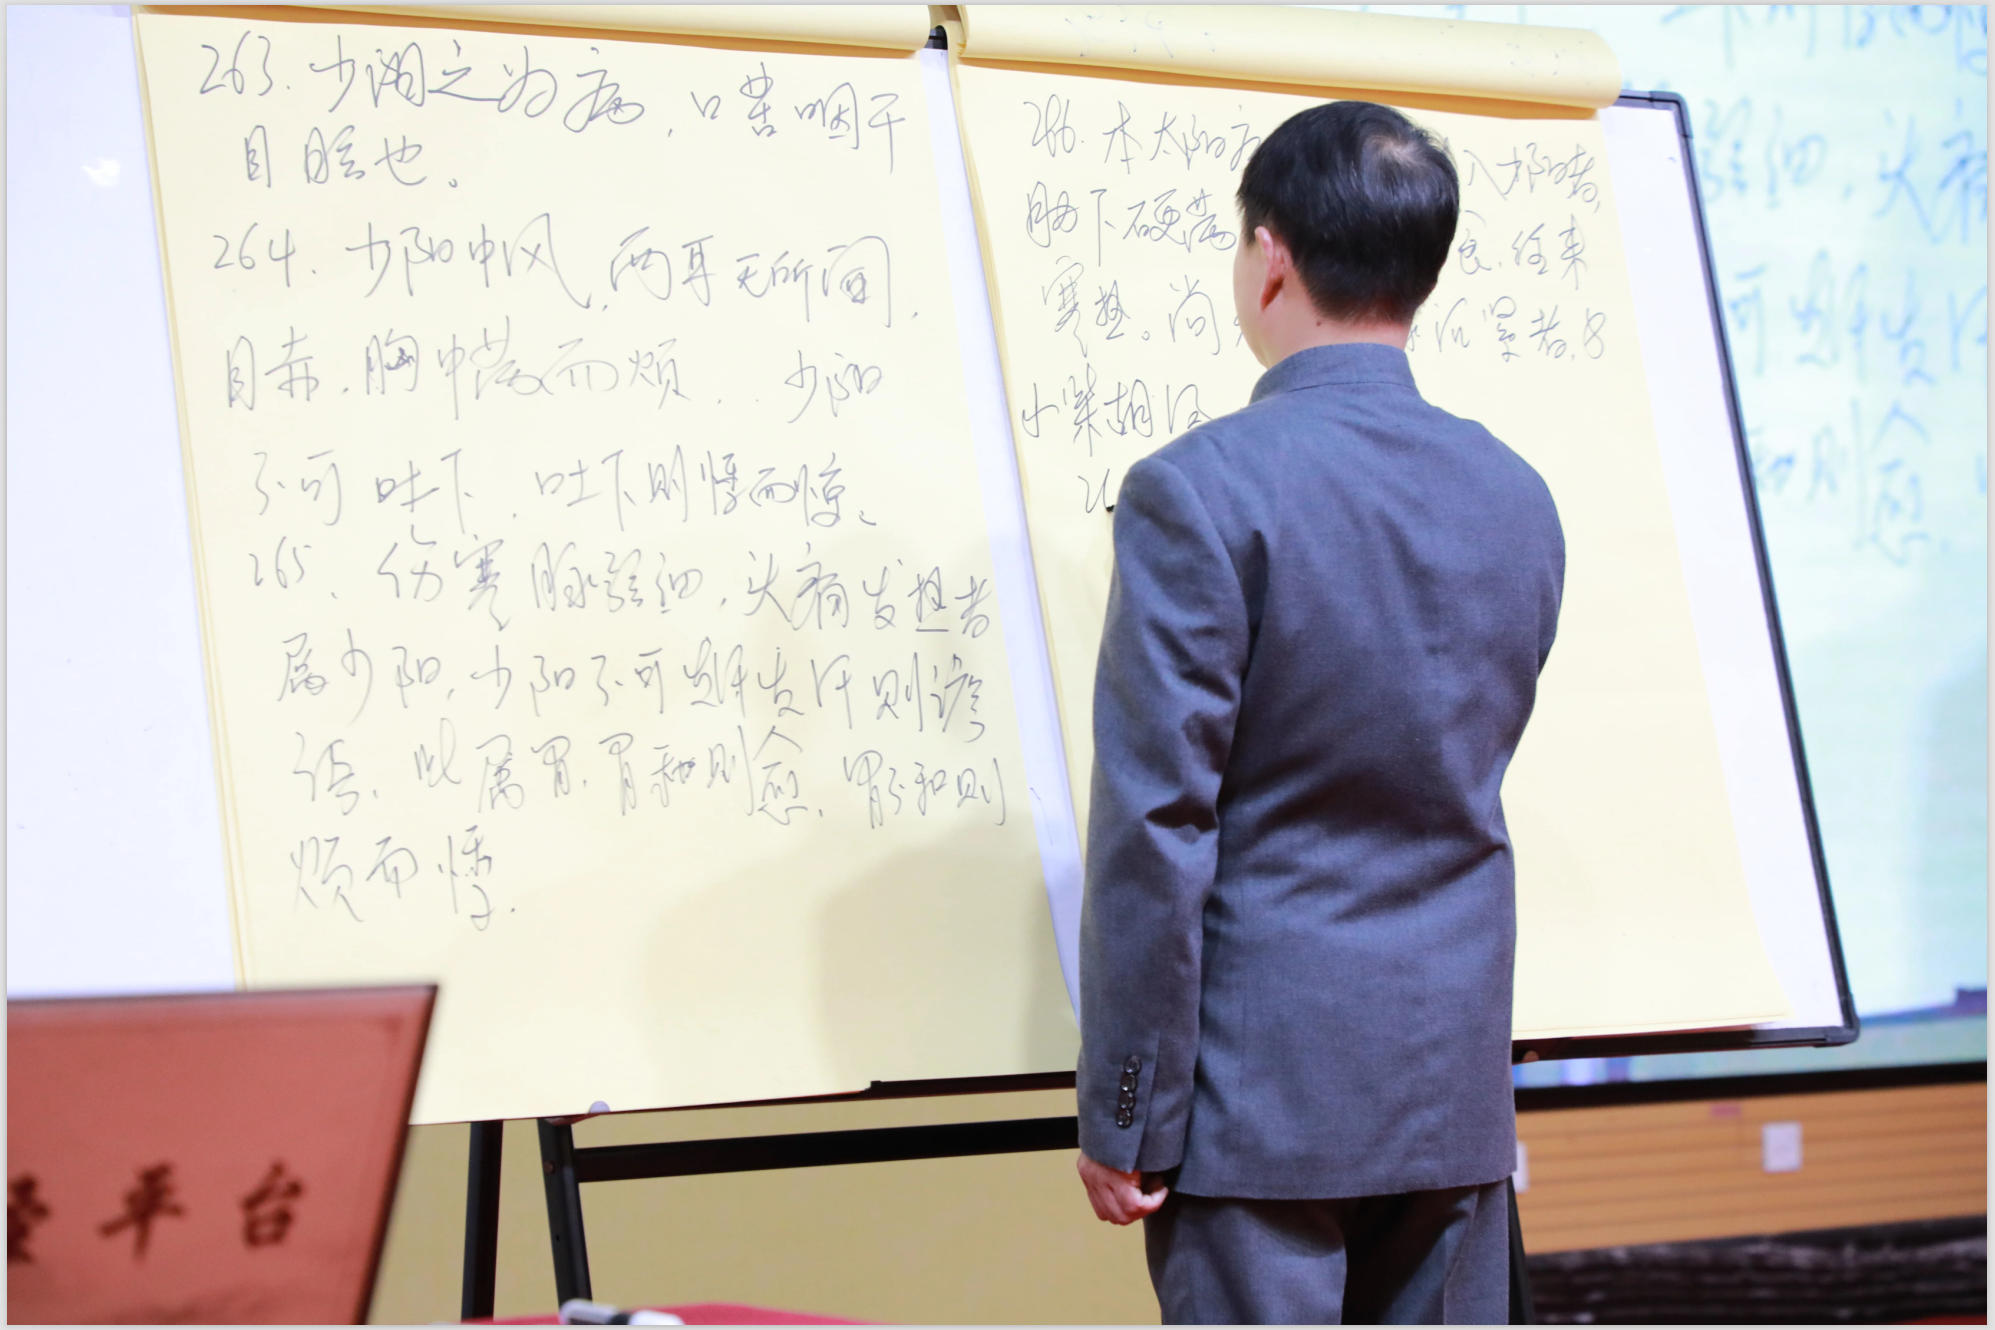 263. 少阳之为病，口苦咽干
目眩也。
264. 少阳中风，两耳无所闻，
目赤，胸中满而烦，少阳
不可吐下，吐下则悸而惊。
265. 伤寒脉弦细，头痛发热者
属少阳，少阳不可发汗发汗则谵
语，此属胃，胃和则愈，胃不和则
烦而悸。
266. 本太阳病 入少阳者，
胁下硬满 食，往来
寒热。尚 沉紧者，与
小柴胡汤
26
平台
细，头痛
可 发汗
和则愈